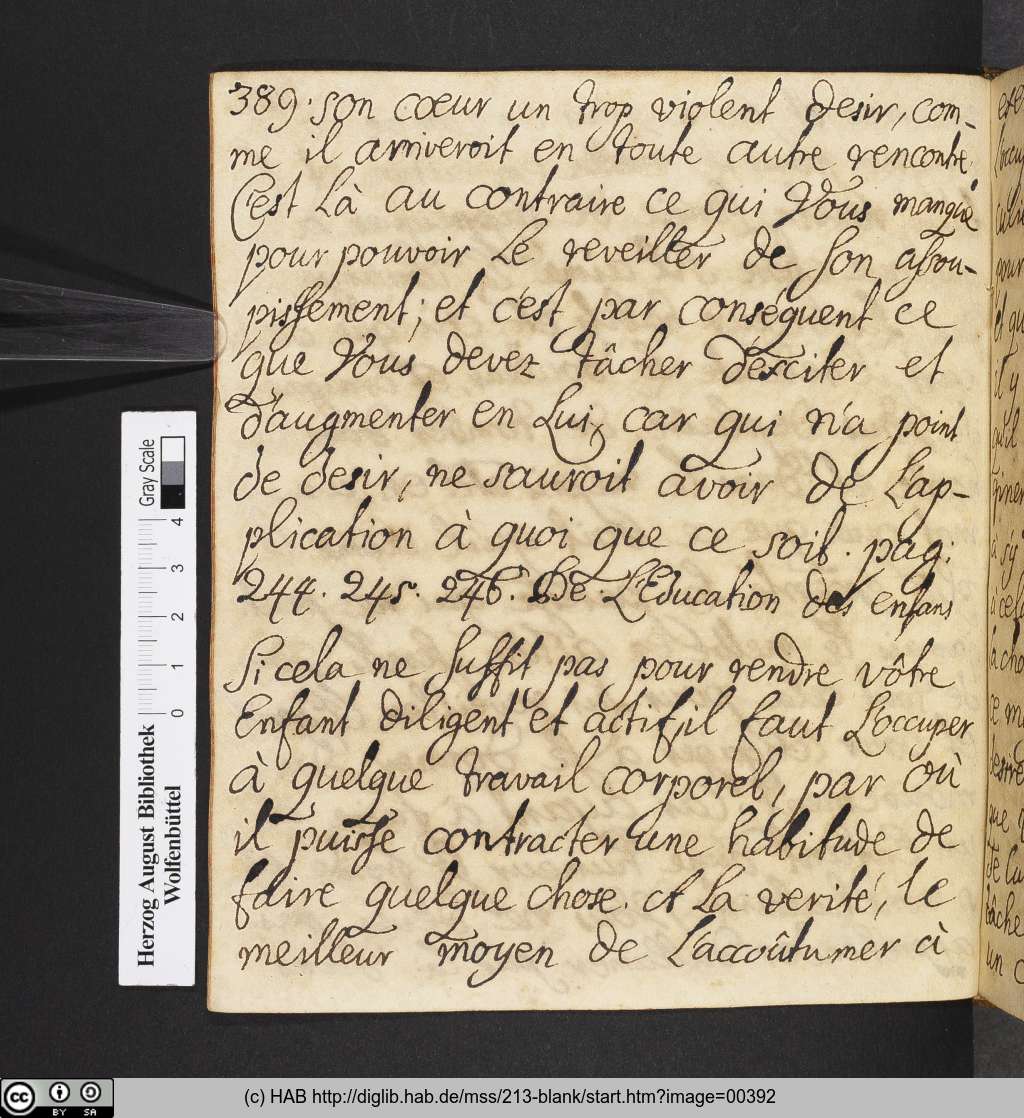 389. son cœur un trop violent desir, com-
me il arriveroit en toute autre rencontre.
C'est là au contraire ce qui Vous manque
pour pouvoir Le reveiller de son assou-
pissement; et c'est par conséquent ce
que Vous devez tâcher d'esciter et
d'augmenter en Lui, car qui n'a point
de desir, ne sauroit avoir de L'ap-
plication à quoi que ce soit. pag:
244. 245. 246. De L'Education des enfans
Si cela ne suffit pas pour rendre vôtre
Enfant diligent et actif, il faut L'occuper
à quelque travail corporel, par où
il puisse contracter une habitude de
faire quelque chose. et La verité, le
meilleur moyen de L'accoûtumer à
Herzog August Bibliothek
Wolfenbüttel
Gray Scale
0 1 2 3 4
cc BY SA
(c) HAB http://diglib.hab.de/mss/213-blank/start.htm?image=00392